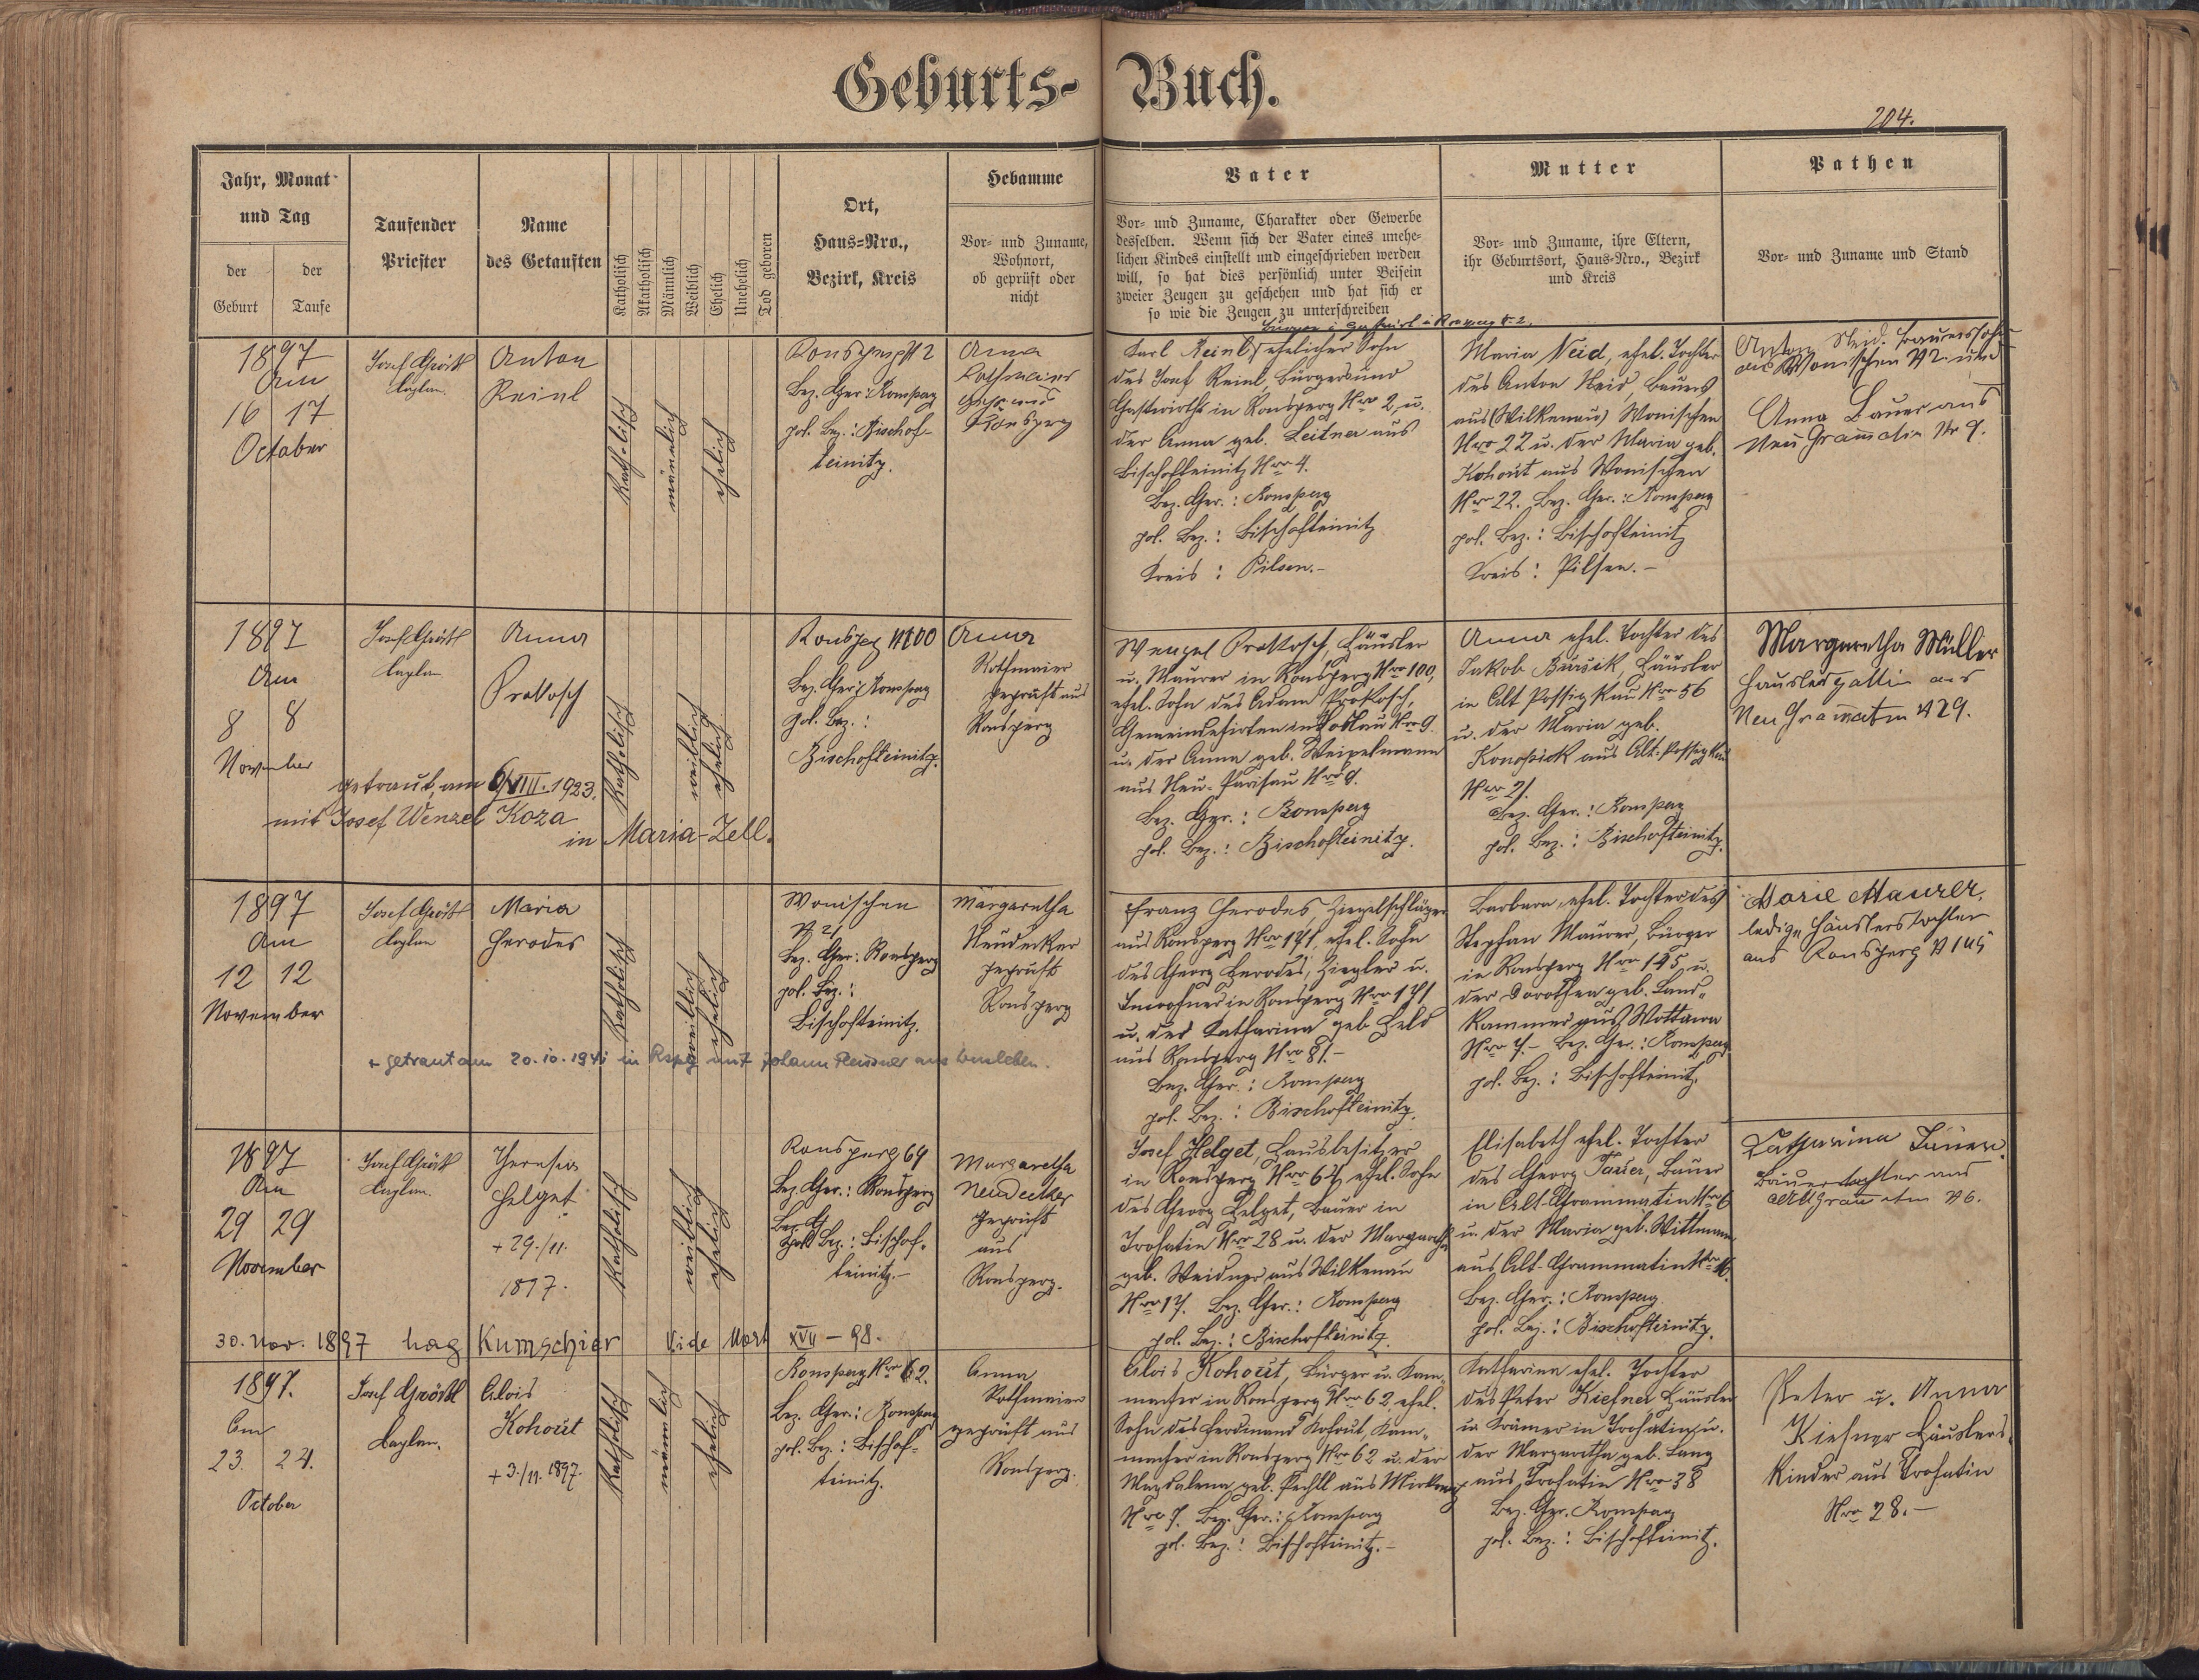 Geburts- Buch.
204.
Jahr, Monat
und Tag
der
Geburt
der
Taufe
Taufender
Priester
Name
des Getauften
Katholisch
Akatholisch
Männlich
Weiblich
Ehelich
Unehelich
Tod geboren
Ort,
Haus-Nro.,
Bezirk, Kreis
Hebamme
Vor- und Zuname,
Wohnort,
ob geprüft oder
nicht
Vater
Vor- und Zuname, Charakter oder Gewerbe
desselben. Wenn sich der Vater eines unehe-
lichen Kindes einstellt und eingeschrieben werden
will, so hat dies persönlich unter Beisein
zweier Zeugen zu geschehen und hat sich er
so wie die Zeugen zu unterschreiben
Mutter
Vor- und Zuname, ihre Eltern,
ihr Geburtsort, Haus-Nro., Bezirk
und Kreis
Pathen
Vor- und Zuname und Stand
1897
Am
16 17
October
Josef
Kaplan
Anton
Reinl
Katholisch
männlich
ehelich
Ronsperg N 2
Bez. Ger.: Ronsperg
pol. Bez.: Bischof-
teinitz.
Anna
Rothmaier
Ronsperg
Karl Reinl, ehelicher Sohn
des Josef Reinl, Bürgers und
Gastwirths in Ronsperg Nro 2, u.
der Anna geb. Leitner aus
Bischofteinitz Nro 4.
Bez. Ger.: Ronsperg
pol. Bez.: Bischofteinitz
Kreis: Pilsen.-
Maria Neid, ehel. Tochter
des Anton Neid, Bauers
aus (Wilkenau) Wonischen
Nro 22 u. der Maria geb.
Kohout aus Wonischen
Nro 22. Bez. Ger.: Ronsperg
pol. Bez.: Bischofteinitz
Kreis: Pilsen.-
Anton Neid, Bauerssohn
aus Wonischen N 22 und
Anna Bauer aus
Neu Gramatin Nr 9.
1897
Am
8 8
November
Josef
Kaplan
Anna
Prokosch
Katholisch
weiblich
ehelich
Ronsperg N 100
Bez. Ger.: Ronsperg
pol. Bez.:
Bischofteinitz.
Anna
Rothmaier
geprüft aus
Ronsperg
Wenzel Prokosch, Häusler
u. Maurer in Ronsperg Nro 100,
ehel. Sohn des Adam Prokosch,
Gemeindehirten in Nro 9
u. der Anna geb. Weipelmann
aus Neu-Parisau Nro 9.
Bez. Ger.: Ronsperg
pol. Bez.: Bischofteinitz.
Anna ehel. Tochter des
Jakob Bursik, Häusler
in Alt Possigkau Nro 56
u. der Maria geb.
Konopick aus Alt-Possigkau
Nro 21.
Bez. Ger.: Ronsperg
pol. Bez.: Bischofteinitz.
Margaretha Müller
Häuslersgattin aus
Neu Gramatin N 29.
getraut am 6/VIII. 1923.
mit Josef Wenzel Koza
in Maria-Zell.
1897
Am
12 12
November
Josef
Kaplan
Maria
Herodes
Katholisch
weiblich
ehelich
Wonischen
N 21
Bez. Ger.: Ronsperg
pol. Bez.:
Bischofteinitz.
Margaretha
Neudecker
geprüft
Ronsperg
Franz Herodes, Ziegelschläger
aus Ronsperg Nro 171, ehel. Sohn
des Georg Herodes, Ziegler u.
Inwohner in Ronsperg Nro 171
u. der Katharina geb. Held
aus Ronsperg Nro 81.-
Bez. Ger.: Ronsperg
pol. Bez.: Bischofteinitz.
Barbara, ehel. Tochter des
Stephan Maurer, Bürger
in Ronsperg Nro 145 u.
der Dorothea geb. Land-
kammer aus Wottawa
Nro 7.- Bez. Ger.: Ronsperg
pol. Bez.: Bischofteinitz.
Marie Maurer,
ledige Häuslerstochter
aus Ronsperg N 145
+ getraut am 20.10.1941 in Rspg mit Johann
1897
Am
29 29
November
Josef
Kaplan.
Theresia
Helget
+ 29./11.
1897.
Katholisch
weiblich
ehelich
Ronsperg 64
Bez. Ger.: Ronsperg
pol. Bez.: Bischof-
teinitz.-
Margaretha
Neudecker
geprüft
aus
Ronsperg.
Josef Helget, Hausbesitzer
in Ronsperg Nro 64, ehel. Sohn
des Georg Helget, Bauer in
Trohatin Nro 28 u. der Margaretha
geb. Weidner aus Wilkenau
Nro 17. Bez. Ger.: Ronsperg
pol. Bez.: Bischofteinitz.
Elisabeth ehel. Tochter
des Georg Tauer, Bauer
in Alt-Grammatin Nro 6
u. der Maria geb. Wittmann
aus Alt-Grammatin Nro 16.
Bez. Ger.: Ronsperg
pol. Bez.: Bischofteinitz.
Katharina Tauer.
Bauerstochter aus
Altgramatin N 6.
30. Nov. 1897 hag Kumschier Vide Mort XVII - 98.
1897.
Am
23. 24.
October
Josef Gröschl
Kaplan.
Alois
Kohout
+ 3./11. 1897.
Katholisch
männlich
ehelich
Ronsperg Nro 62.
Bez. Ger.: Ronsperg
pol. Bez.: Bischof-
teinitz.
Anna
Rothmaier
geprüft aus
Ronsperg.
Alois Kohout, Bürger u. Kam-
macher in Ronsperg Nro 62 ehel.
Sohn des Ferdinand Kohout, Kam-
macher in Ronsperg Nro 62 u. der
Magdalena geb. Pechtl aus
Nro 7. Bez. Ger.: Ronsperg
pol. Bez.: Bischofteinitz.-
Katharina ehel. Tochter
des Peter Kiefner, Häusler
u. Krämer in Trohatin u.
der Margaretha geb. Lang
aus Trohatin Nro 38
Bez. Ger. Ronsperg
pol. Bez.: Bischofteinitz.
Peter u. Anna
Kiefner Häuslers-
kinder aus Trohatin
Nro 28.-